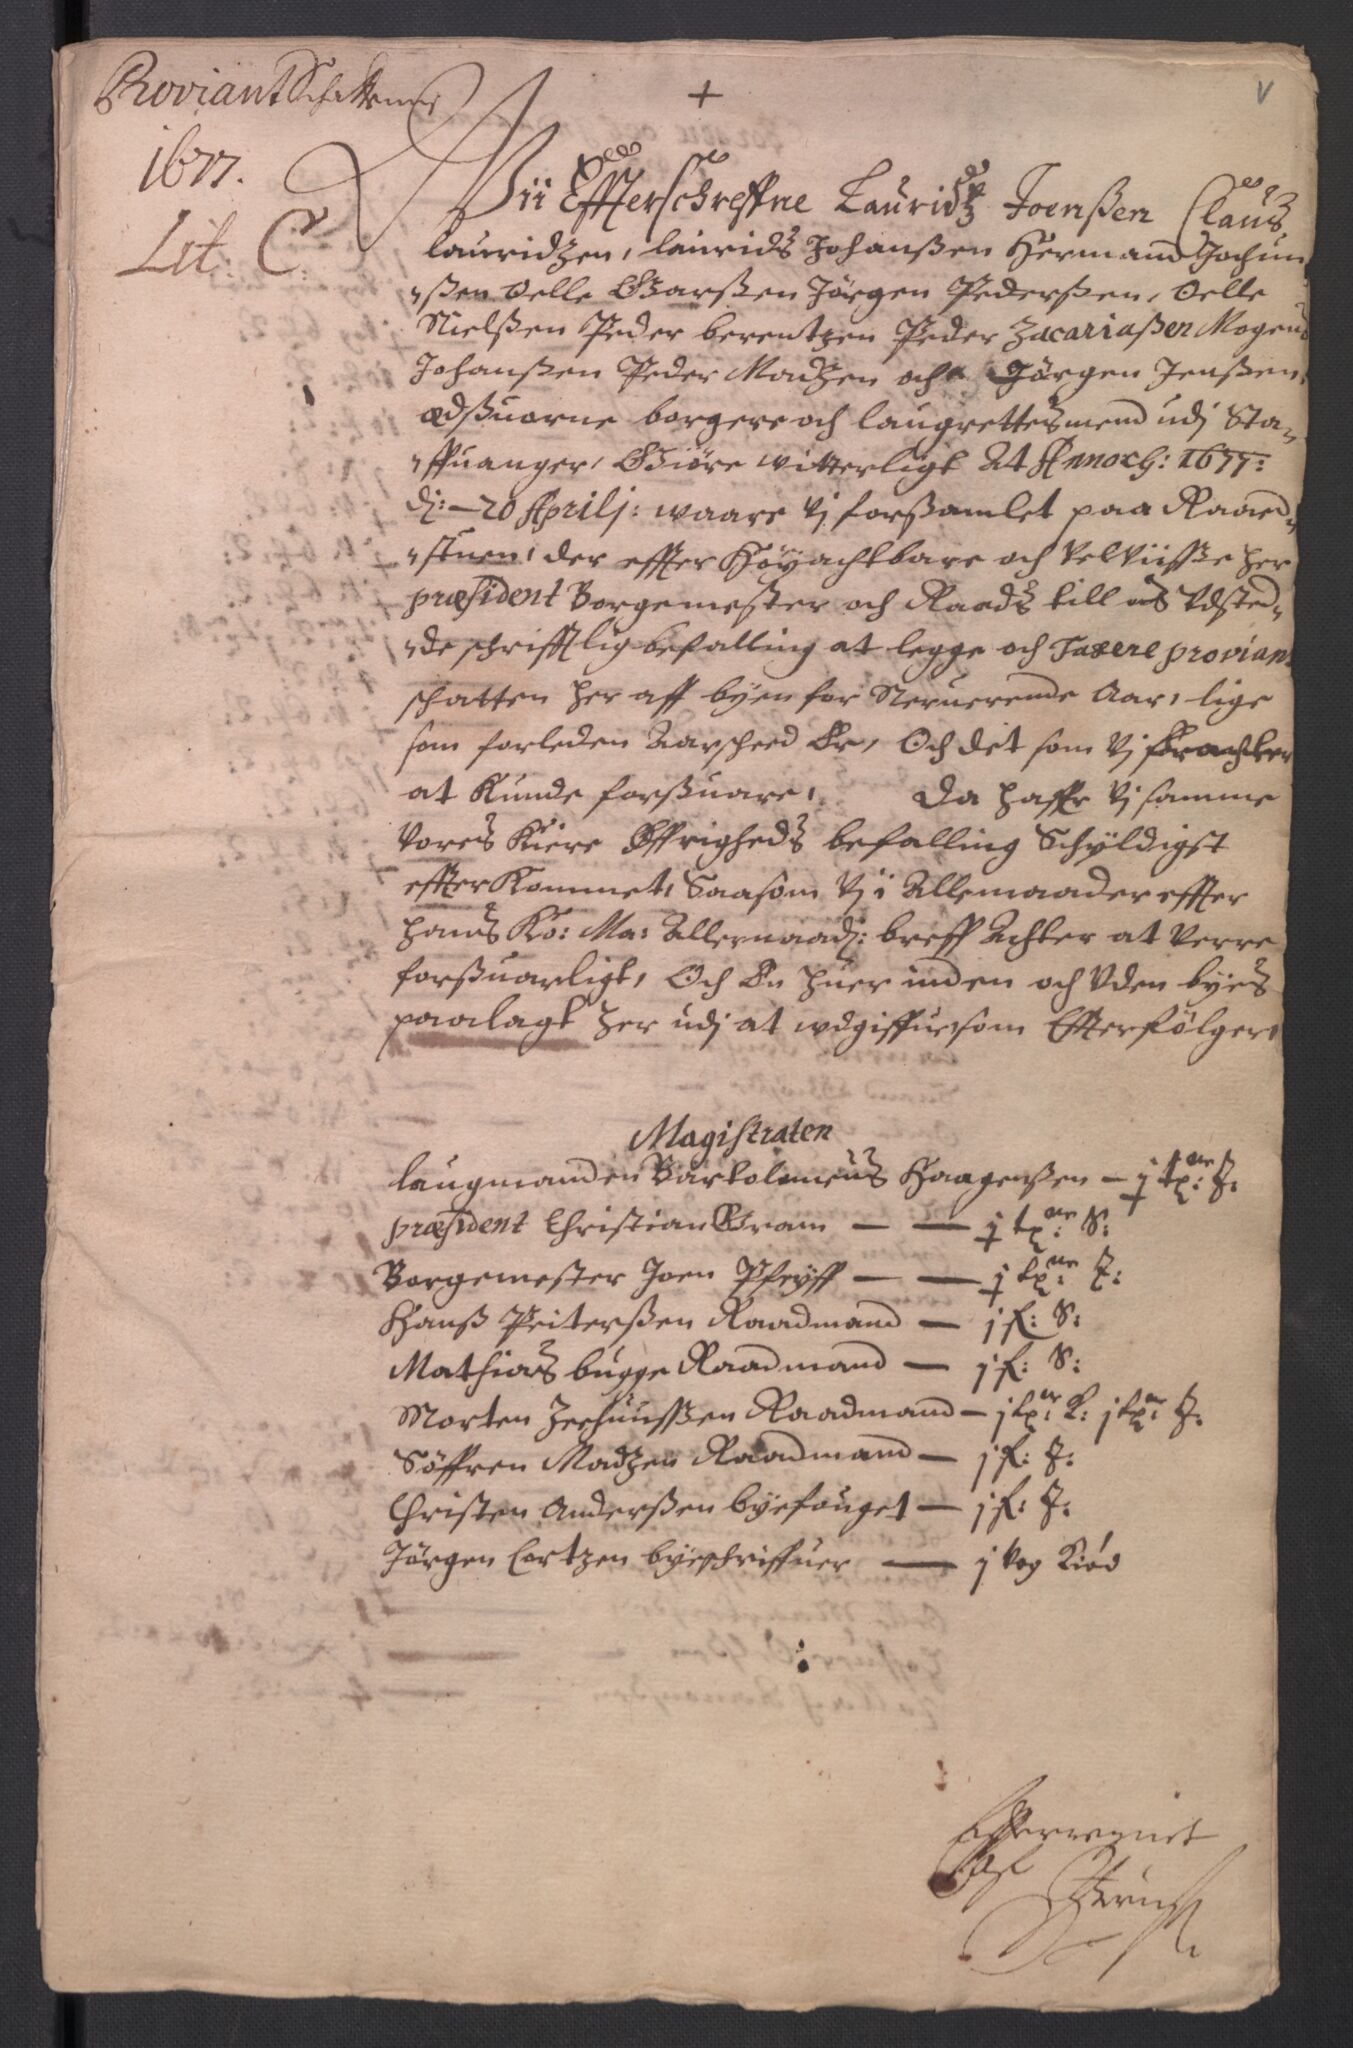 Proviant Schattens
1677.
Lit: C:
+
V
Vii Effterschreffne Lauridtz Joenßen Claus
lauridzen, laurids Johanßen Hermand Jochum
ßen Oelle Garßen Jörgen Pederßen, Oelle
Nielßen Peder berentzen Peder Zacariaßen Mogens
Johanßen Peder Madzen och Jörgen Jenßen,
ædßuorne borgere och laugrettesmend udj Sta-
ffuanger, Giöre witterligt At Annoch: 1677:
d: 20 Aprilj: waare Vj forßamlet paa Raad-
stuen, der effter Höyachtbare och Velviisse her
præsident Borgemester och Raads till os Vdsted-
de schrifftlig befalling at legge och Taxere proviant
schatten her aff byen for Neruerende Aar, lige
som forleden Aar scheed Er, Och det som Vj tracter
at Kunde forßuare, Da haffr Vj samme
Vores Kiere Øffrigheds befalling Schyldigst
effterKommet, Saasom Vj i Allemaader effter
hans Ko: Ma: Allernaad: breff Achter at Verre
forßuarligt, Och En huer inden och Vden byes
paalagt her udj at wdgiffue som Effterfölger,
Magistraten
laugmanden Bartolomeus Haagenßen - j tø:ne J:
præsident Christian Gram — — j tø:ne S:
Borgemester Joen Pfeyff — — j tø:ne J:
Hanß Peiterßen Raadmand — j f: S:
Mathias bugge Raadmand — j f: S:
Morten Zeehuußen Raadmand - j tø:ne R: j tø:ne J:
Söffren Madzen Raadmand — j f: J:
Christen Anderßen byefouget — j f: J:
Jörgen Cortzen byeschriffuer — j Vog Kiød
Efterregnet